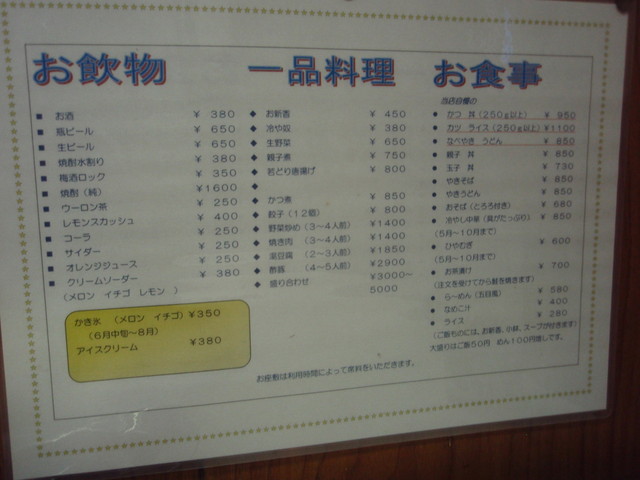 お飲物
■ お酒 ¥ 380
■ 瓶ビール ¥ 650
■ 生ビール ¥ 650
■ 焼酎水割り ¥ 380
■ 梅酒ロック ¥ 350
■ 焼酎（純） ¥1600
■ ウーロン茶 ¥ 250
■ レモンスカッシュ ¥ 400
■ コーラ ¥ 250
■ サイダー ¥ 250
■ オレンジジュース ¥ 250
■ クリームソーダー ¥ 380
（メロン イチゴ レモン ）
かき氷 （メロン イチゴ）¥350
（6月中旬～8月）
アイスクリーム ¥380
一品料理
◆ お新香 ¥ 450
◆ 冷や奴 ¥ 380
◆ 生野菜 ¥ 650
◆ 親子煮 ¥ 750
◆ 若とり唐揚げ ¥ 800
◆
◆ かつ煮 ¥ 850
◆ 餃子（12個） ¥ 800
◆ 野菜炒め（3～4人前） ¥1400
◆ 焼き肉 （3～4人前） ¥1400
◆ 湯豆腐 （2～3人前） ¥1850
◆ 酢豚 （4～5人前） ¥2900
◆ 盛り合わせ ¥3000～
5000
お食事
当店自慢の
● かつ 丼（250g以上） ¥ 950
● カツ ライス（250g以上）¥1100
● なべやき うどん ¥ 850
● 親子 丼 ¥ 850
● 玉子 丼 ¥ 730
● やきそば ¥ 850
● やきうどん ¥ 850
● おそば（とろろ付き） ¥ 680
● 冷やし中茶（具がたっぷり） ¥ 850
（5月～10月まで）
● ひやむぎ ¥ 600
（5月～10月まで）
● お茶漬け ¥ 700
（注文を受けてから鮭を焼きます）
● らーめん（五目風） ¥ 580
● なめこ汁 ¥ 400
● ライス ¥ 280
（ご飯ものには、お新香、小鉢、スープが付きます）
大盛りはご飯50円 めん100円増しです。
お座敷は利用時間によって席料をいただきます。